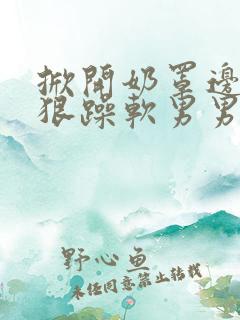 掀開奶罩邊
狠躁軟男男
野心鱼
未经同意禁止转载